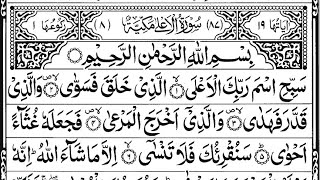 اٰیَاتُهَا ١٩ (٨٧) سُوْرَةُ الْاَعْلٰى مَكِّيَّةٌ (٨) رُكُوْعُهَا ١
بِسْمِ اللّٰهِ الرَّحْمٰنِ الرَّحِيْمِ
سَبِّحِ اسْمَ رَبِّكَ الْاَعْلَى ۙ ١ الَّذِيْ خَلَقَ فَسَوّٰى ۙ ٢ وَالَّذِيْ
قَدَّرَ فَهَدٰى ۙ ٣ وَالَّذِيْٓ اَخْرَجَ الْمَرْعٰى ۙ ٤ فَجَعَلَهٗ غُثَآءً
اَحْوٰى ؕ ٥ سَنُقْرِئُكَ فَلَا تَنْسٰٓى ۙ ٦ اِلَّا مَا شَآءَ اللّٰهُ ؕ اِنَّهٗ